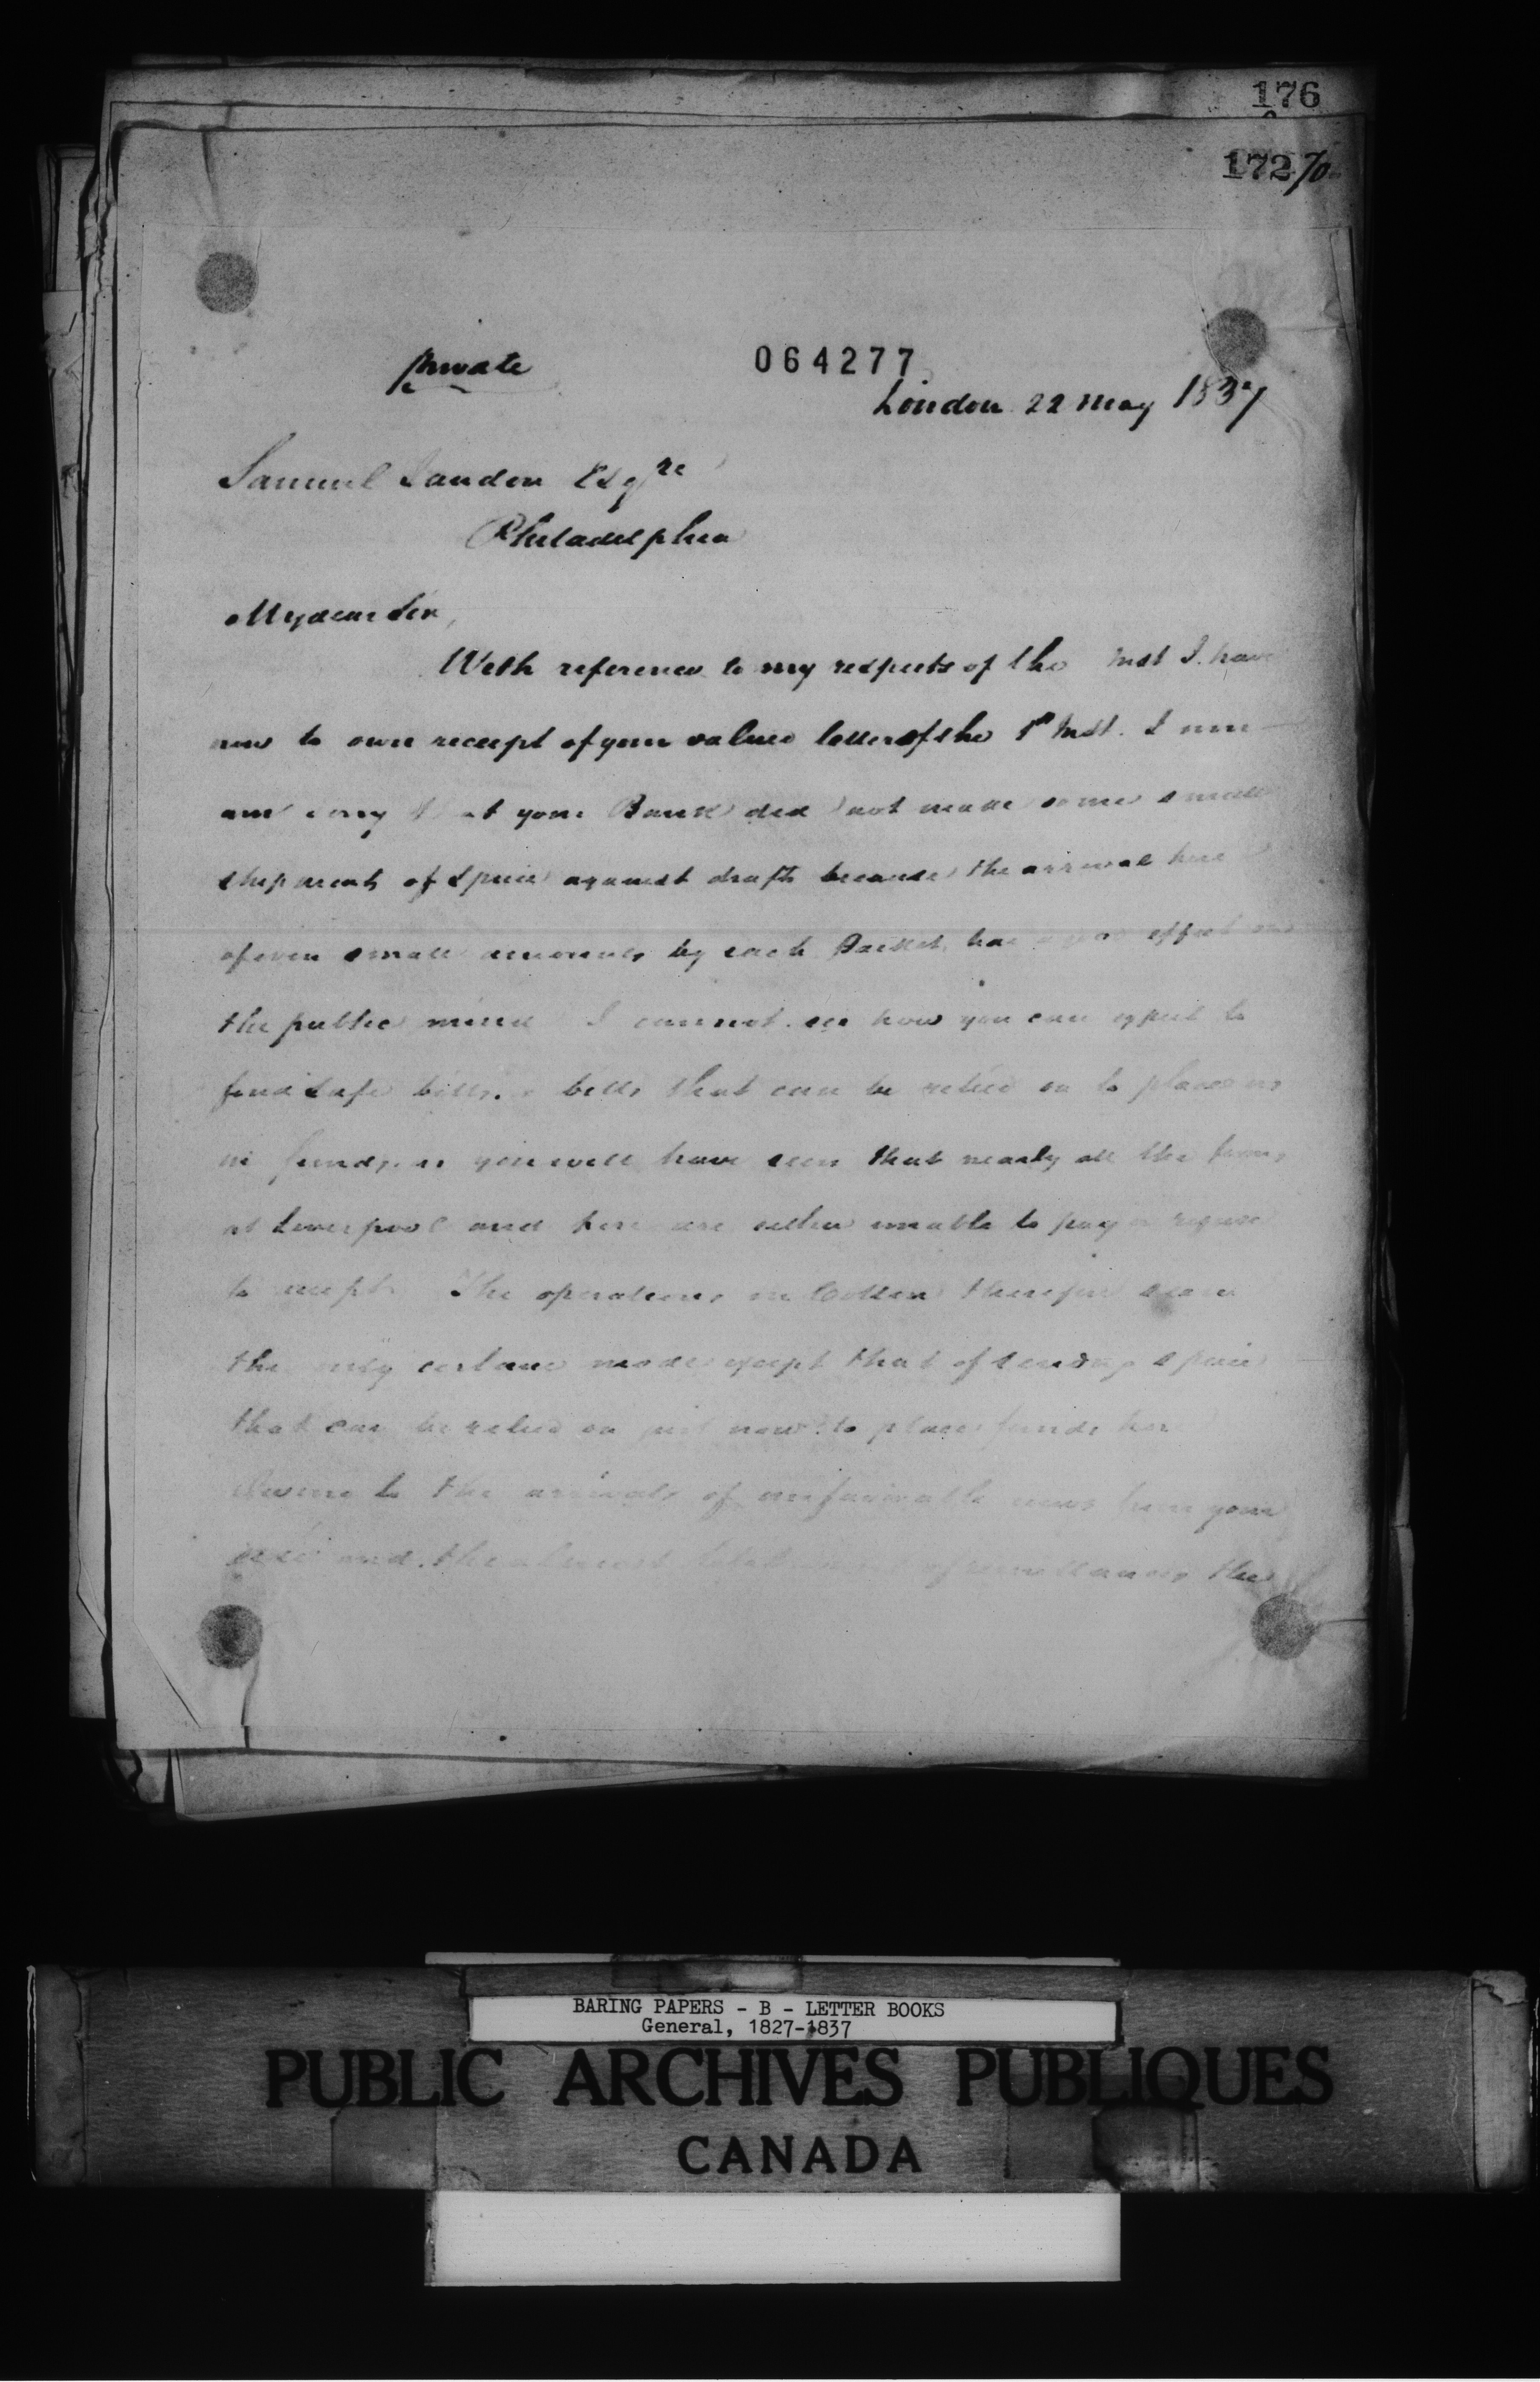 176
172 70
Private
064277
London 22 May 1837
Samuel Jaudon Esqre
Philadelphia
My dear Sir,
With reference to my respects of the Inst I have
now to own receipt of your valued letter of the 1st Inst. I
am sorry that your Bank did not make some small
shipments of Specie against drafts because the arrival here
of even small amounts by each Packet, has a effect on
the public mind I cannot see how you can expect to
find safe bills, bills that can be relied on to place us
in funds, as you will have seen that nearly all the firms
at Liverpool and here are either unable to pay or refuse
to accept. The operations in Cotton therefore seem
the only certain mode except that of sending specie
that can be relied on just now to place funds here
Owing to the arrivals of unfavorable news from your
side and the almost total of remittances, the
BARING PAPERS - B - LETTER BOOKS
General, 1827-1837
PUBLIC ARCHIVES PUBLIQUES
CANADA